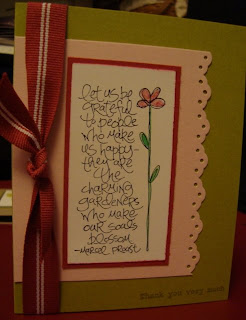 let us be
grateful
to people
who make
us happy-
they are
the
charming
gardeners
who make
our souls
blossom
-marcel proust
Thank you very much